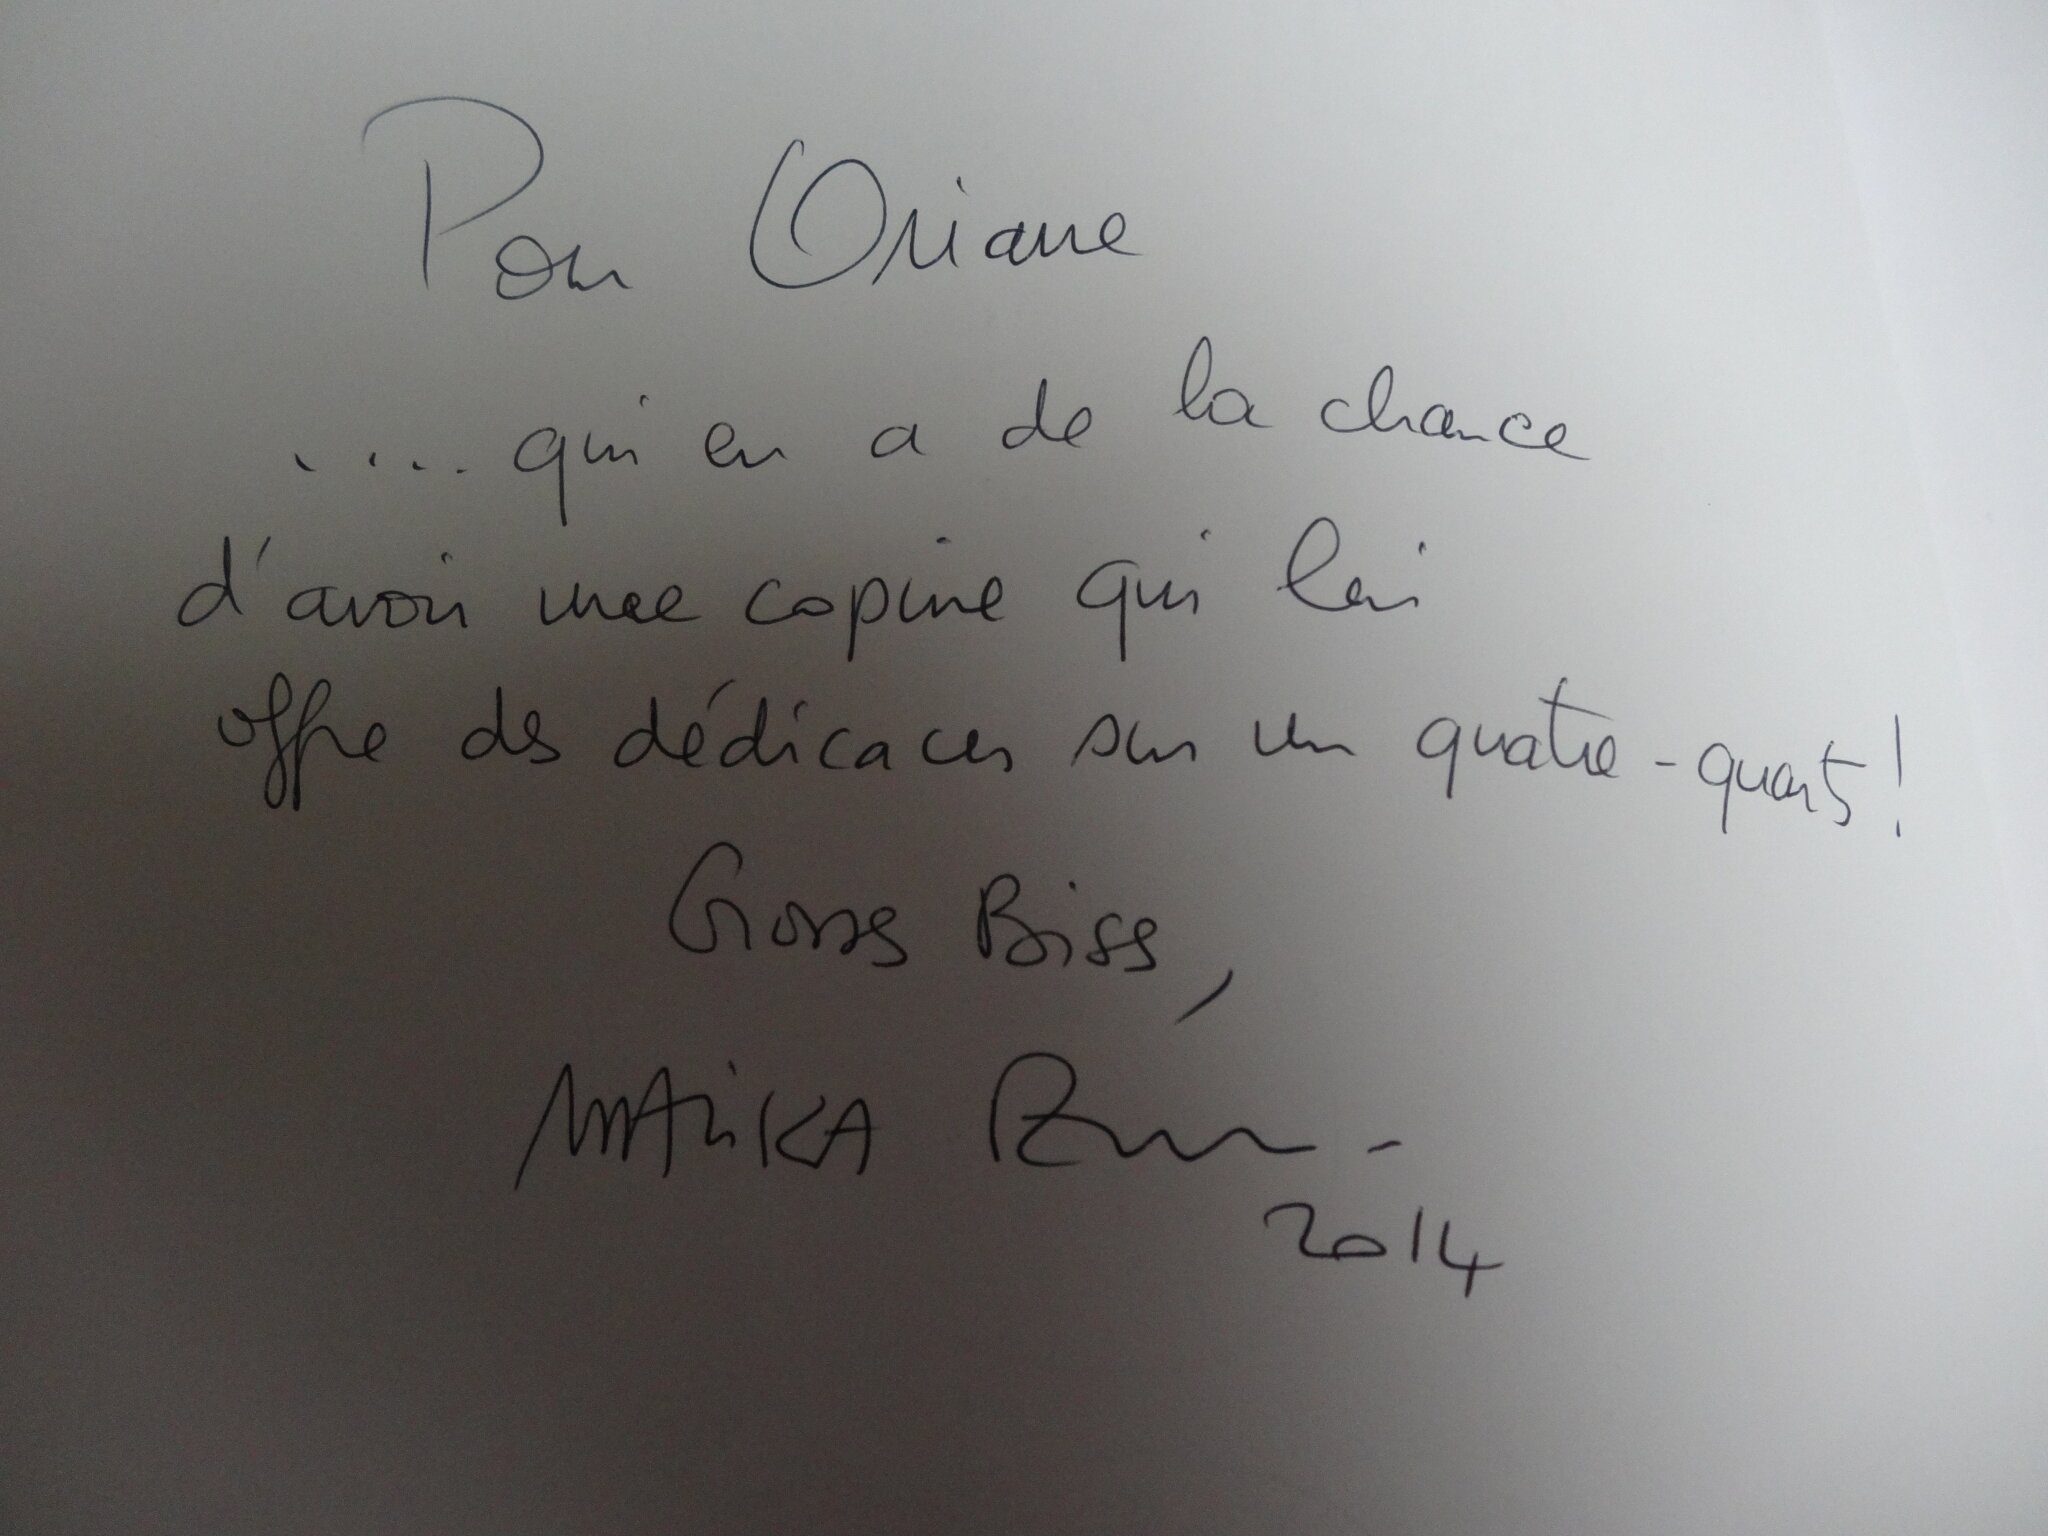 Pour Oriane
.... qui en a de la chance
d'avoir une copine qui lui
offre des dédicaces sur un quatre-quarts!
Gross Biss,
MALiKA
2014